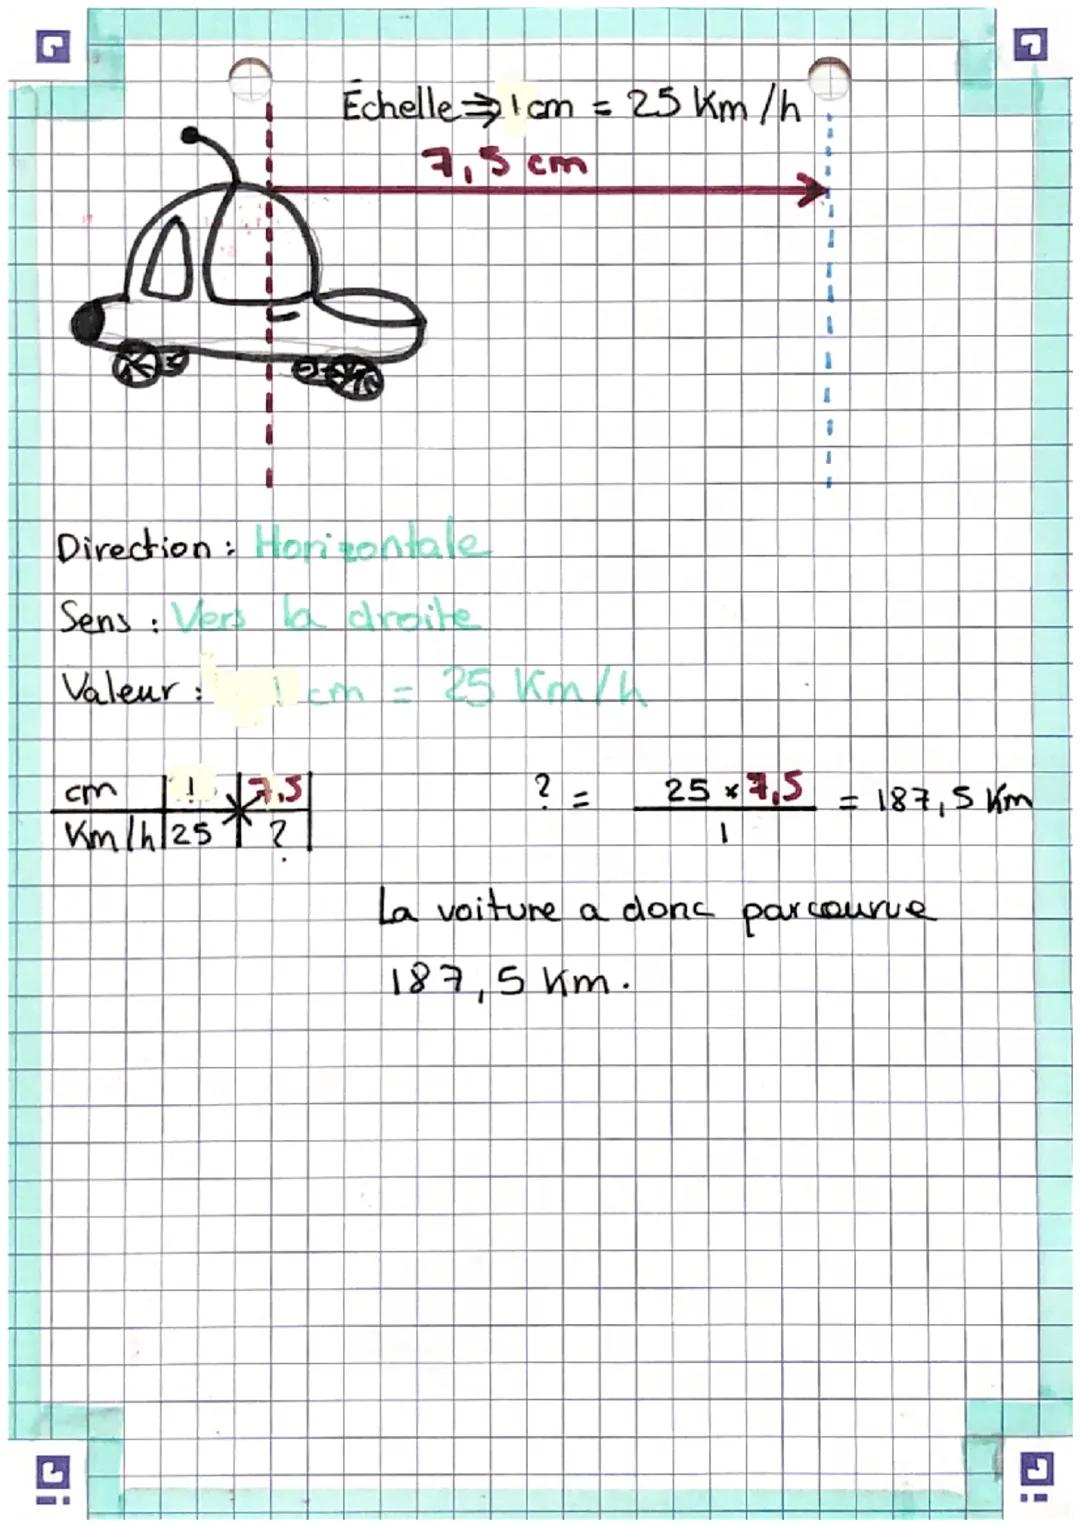 Échelle ⇒ 1 cm = 25 Km/h
7,5 cm
Direction : Horizontale
Sens : Vers la droite
Valeur : 1 cm = 25 Km/h
cm | 1 | 7,5
Km/h | 25 | ?
? = 25 × 7,5 / 1 = 187,5 Km
La voiture a donc parcourue
187,5 Km.